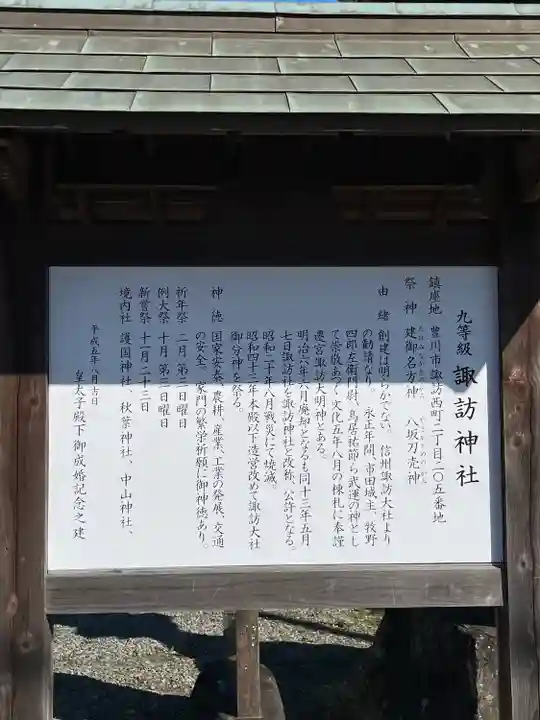 九等級 諏訪神社
鎮座地 豊川市諏訪西町二丁目二〇五番地
祭神 建御名方神 八坂刀売神
由緒 創建は明らかでない、信州諏訪大社より
の勧請なり。永正年間、市田城主、牧野
四郎左衛門尉、鳥居祐節ら武運の神とし
て崇敬あつく文化五年八月の棟札に奉謹
遷宮諏訪大明神とある。
明治六年六月廃却となるも同十三年五月
七日諏訪社を諏訪神社と改称、公許となる。
昭和二十年八月戦災にて焼滅。
昭和四十三年本殿以下造営改めて諏訪大社
御分神を祭る。
神徳 国家安泰、農耕、産業、工業の発展、交通
の安全、家門の繁栄祈願に御神徳あり。
祈年祭 二月 第三日曜日
例大祭 十月 第三日曜日
新嘗祭 十一月二十三日
境内社 護国神社、秋葉神社、中山神社、
平成五年八月吉日
皇太子殿下御成婚記念之建